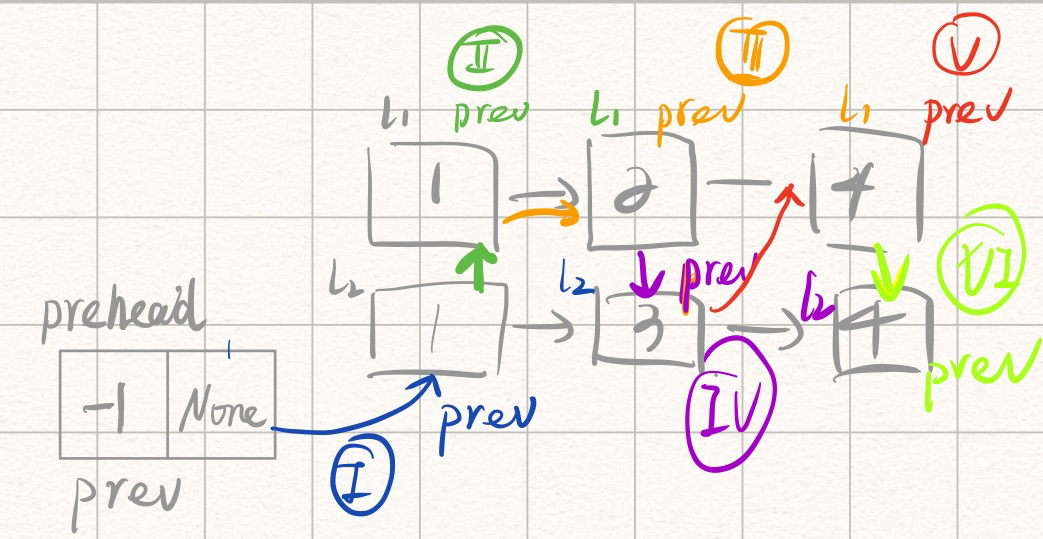 II III V
L1 prev L1 prev L1 prev
1 2 4
L2 L2 prev L2 VI
prehead
1 3 4
prev
-1 None
prev IV
I
prev